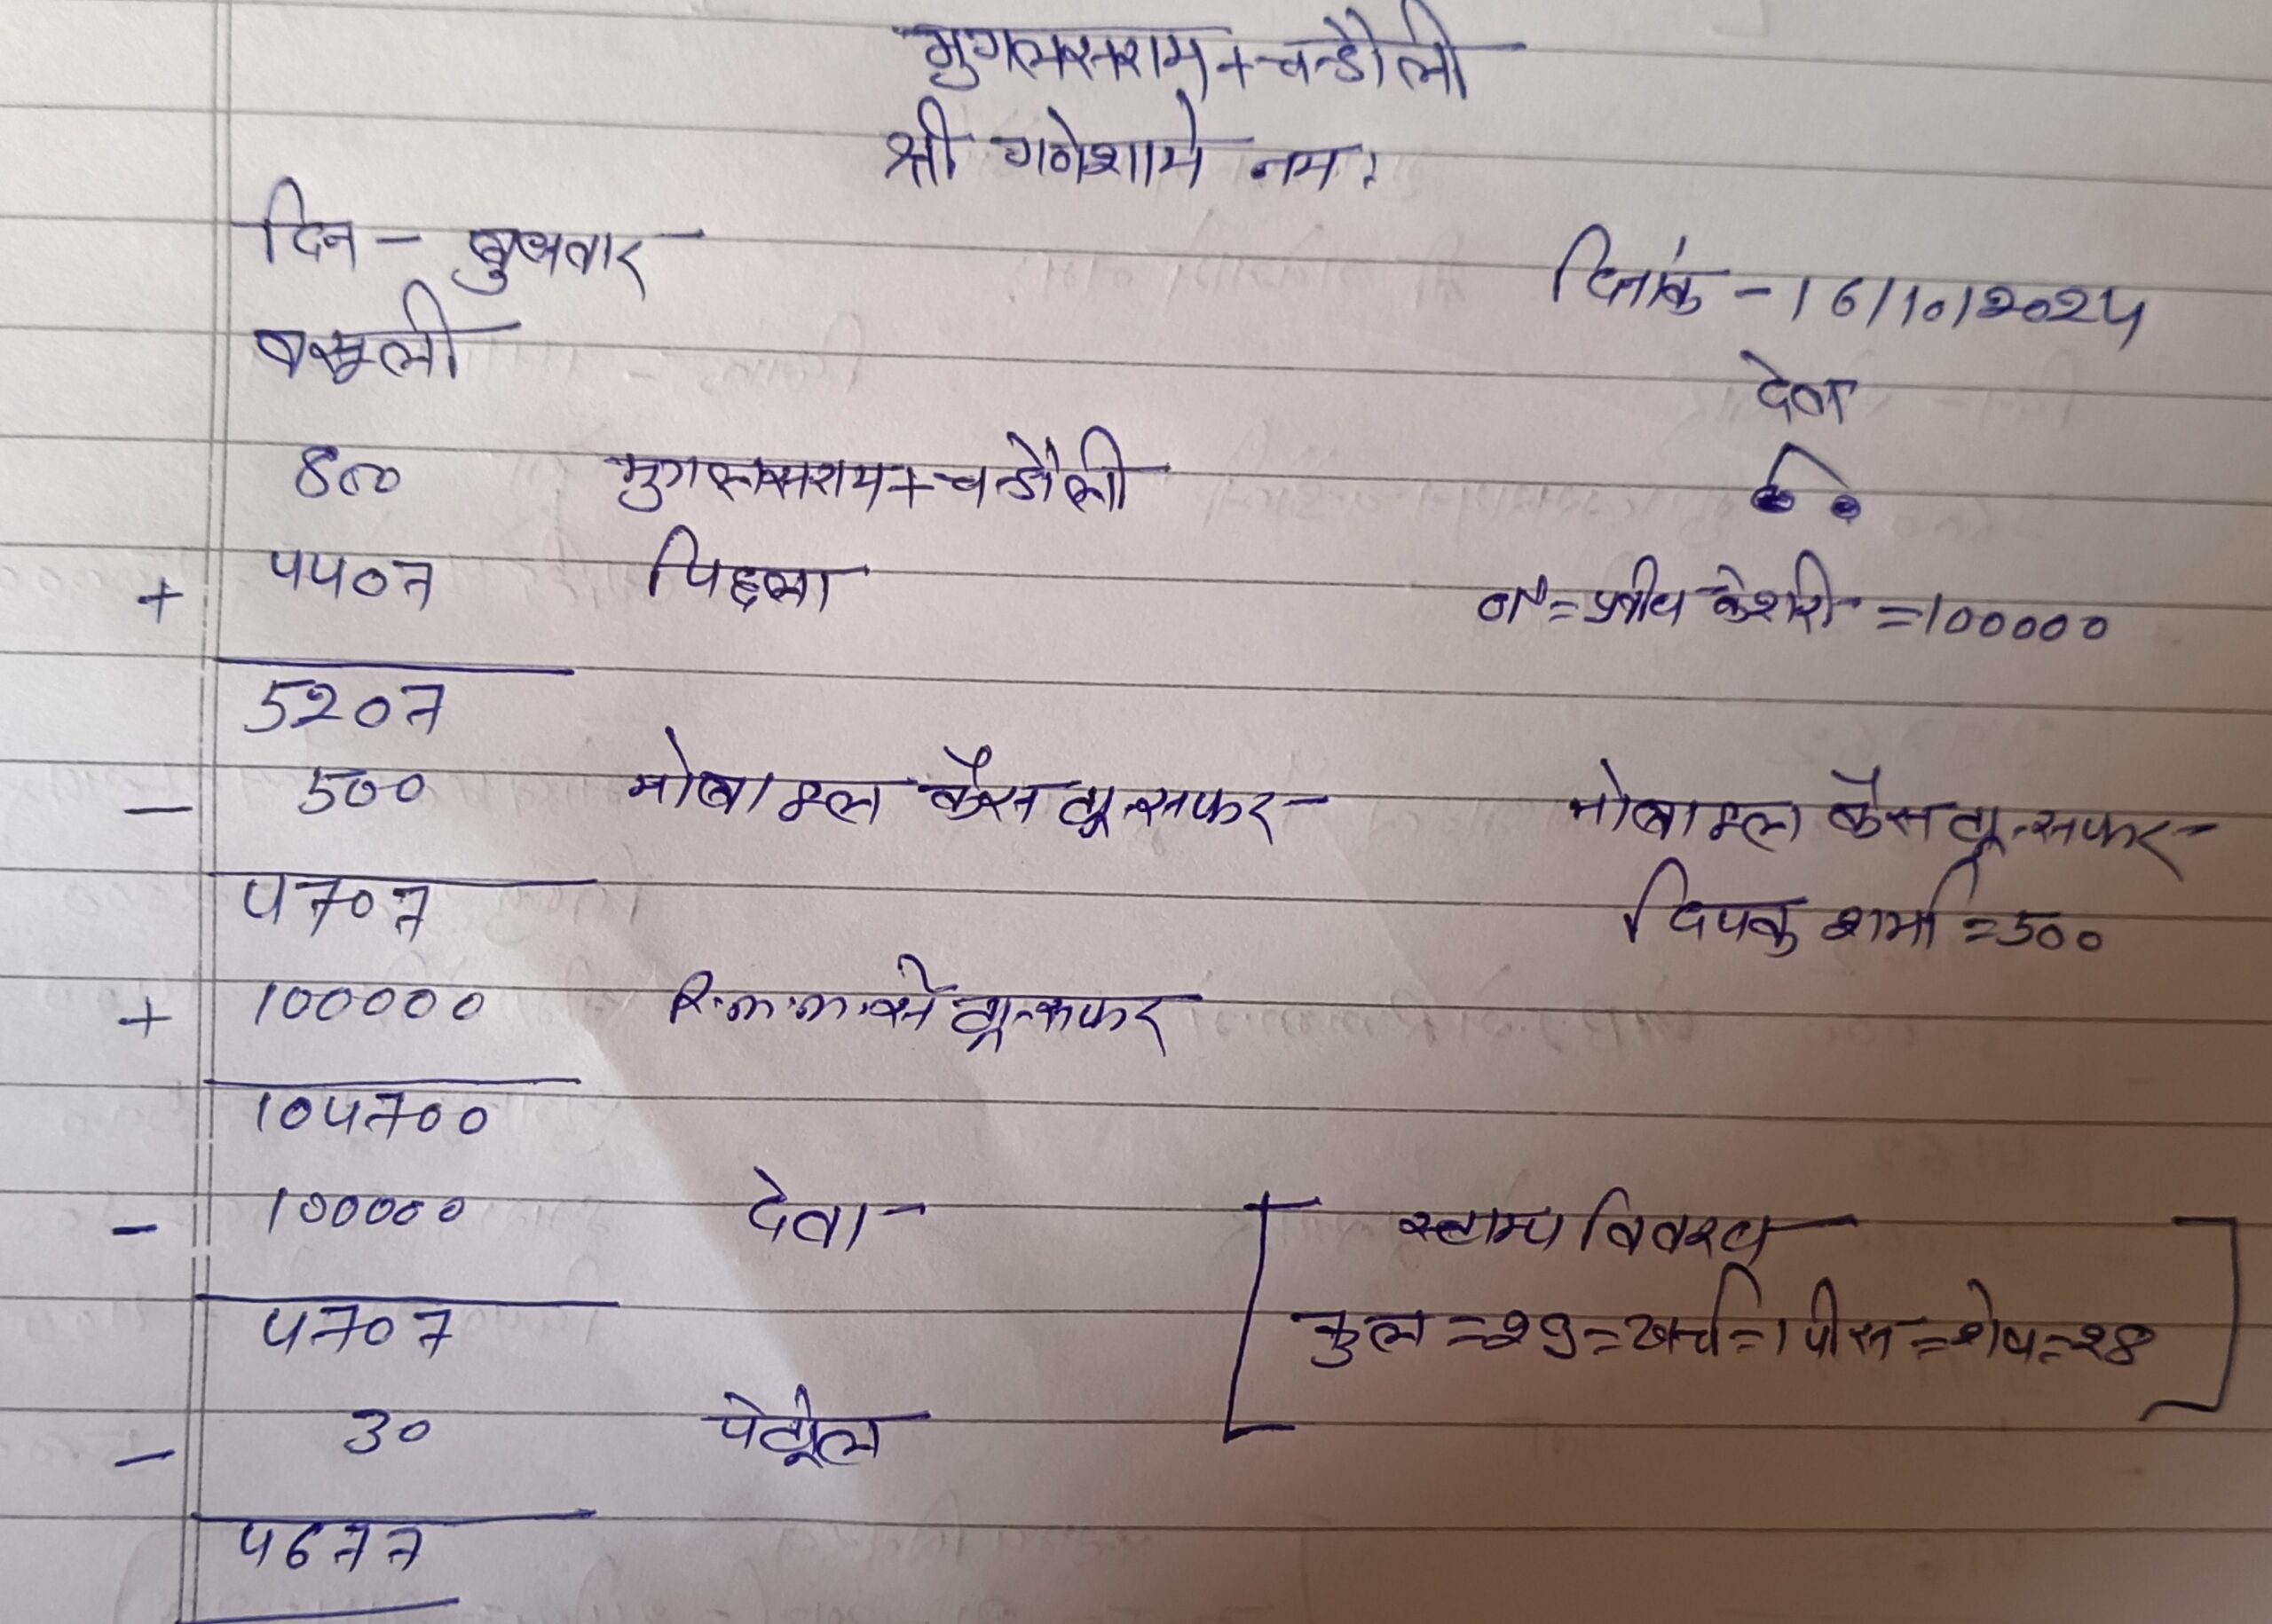 मुगलसराय + चन्डौली
श्री गणेशाये नमः
दिन - बुधवार
दिनांक - 16/10/2024
वसूली
देवा
800 मुगलसराय + चन्डौली
+ 4407 पिछला
प्रवीण केशरी = 100000
5207
- 500 मोबाइल कैस ट्रान्सफर
मोबाइल कैस ट्रान्सफर
4707
दिपक शर्मा = 500
+ 100000 R.m.m. से ट्रान्सफर
104700
- 100000 देवा
स्टाम्प विवरण
4707
कुल = 29 = खर्च = 1 पीस = शेष = 28
- 30 पेट्रोल
4677